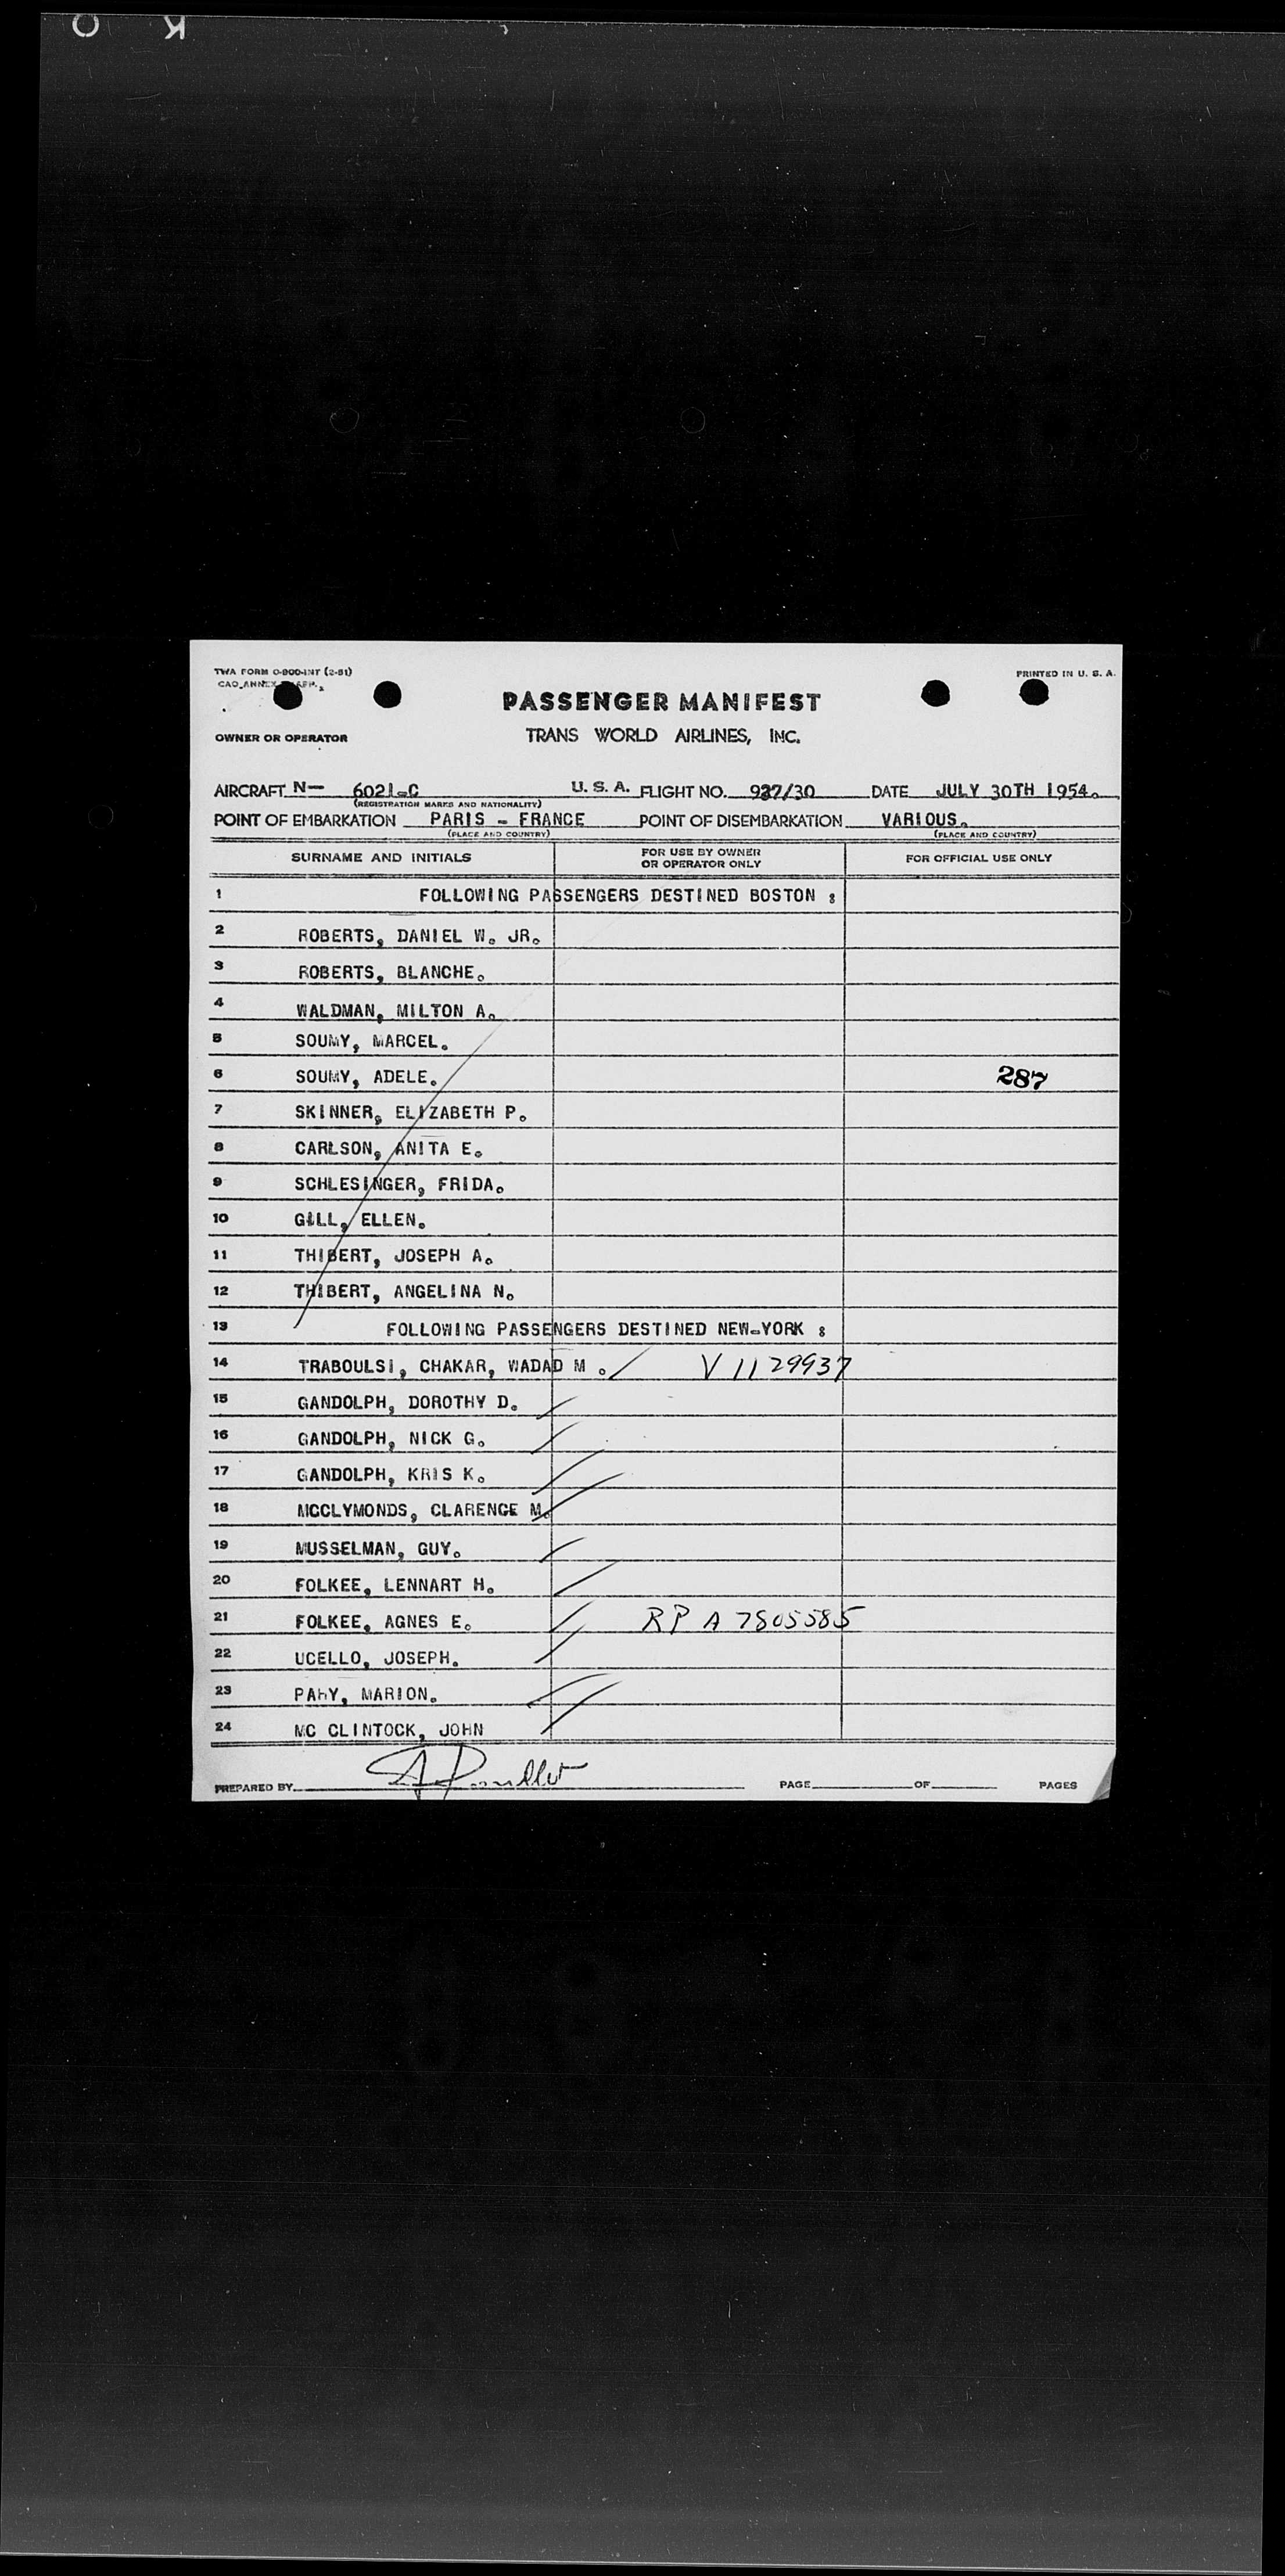 O K
TWA FORM O-900-INT (2-51)
PRINTED IN U. S. A.
PASSENGER MANIFEST
OWNER OR OPERATOR
TRANS WORLD AIRLINES, INC.
AIRCRAFT N— 6021-C U. S. A. FLIGHT NO. 927/30 DATE JULY 30TH 1954.
(REGISTRATION MARKS AND NATIONALITY)
POINT OF EMBARKATION PARIS - FRANCE POINT OF DISEMBARKATION VARIOUS.
(PLACE AND COUNTRY) (PLACE AND COUNTRY)
SURNAME AND INITIALS FOR USE BY OWNER OR OPERATOR ONLY FOR OFFICIAL USE ONLY
1 FOLLOWING PASSENGERS DESTINED BOSTON :
2 ROBERTS, DANIEL W. JR.
3 ROBERTS, BLANCHE.
4 WALDMAN, MILTON A.
5 SOUMY, MARCEL.
6 SOUMY, ADELE. 287
7 SKINNER, ELIZABETH P.
8 CARLSON, ANITA E.
9 SCHLESINGER, FRIDA.
10 GILL, ELLEN.
11 THIBERT, JOSEPH A.
12 THIBERT, ANGELINA N.
13 FOLLOWING PASSENGERS DESTINED NEW-YORK :
14 TRABOULSI, CHAKAR, WADAD M . V 1129937
15 GANDOLPH, DOROTHY D.
16 GANDOLPH, NICK G.
17 GANDOLPH, KRIS K.
18 MCCLYMONDS, CLARENCE M.
19 MUSSELMAN, GUY.
20 FOLKEE, LENNART H.
21 FOLKEE, AGNES E. RP A 7805585
22 UCELLO, JOSEPH.
23 MARION.
24 MC CLINTOCK, JOHN
PREPARED BY PAGE OF PAGES